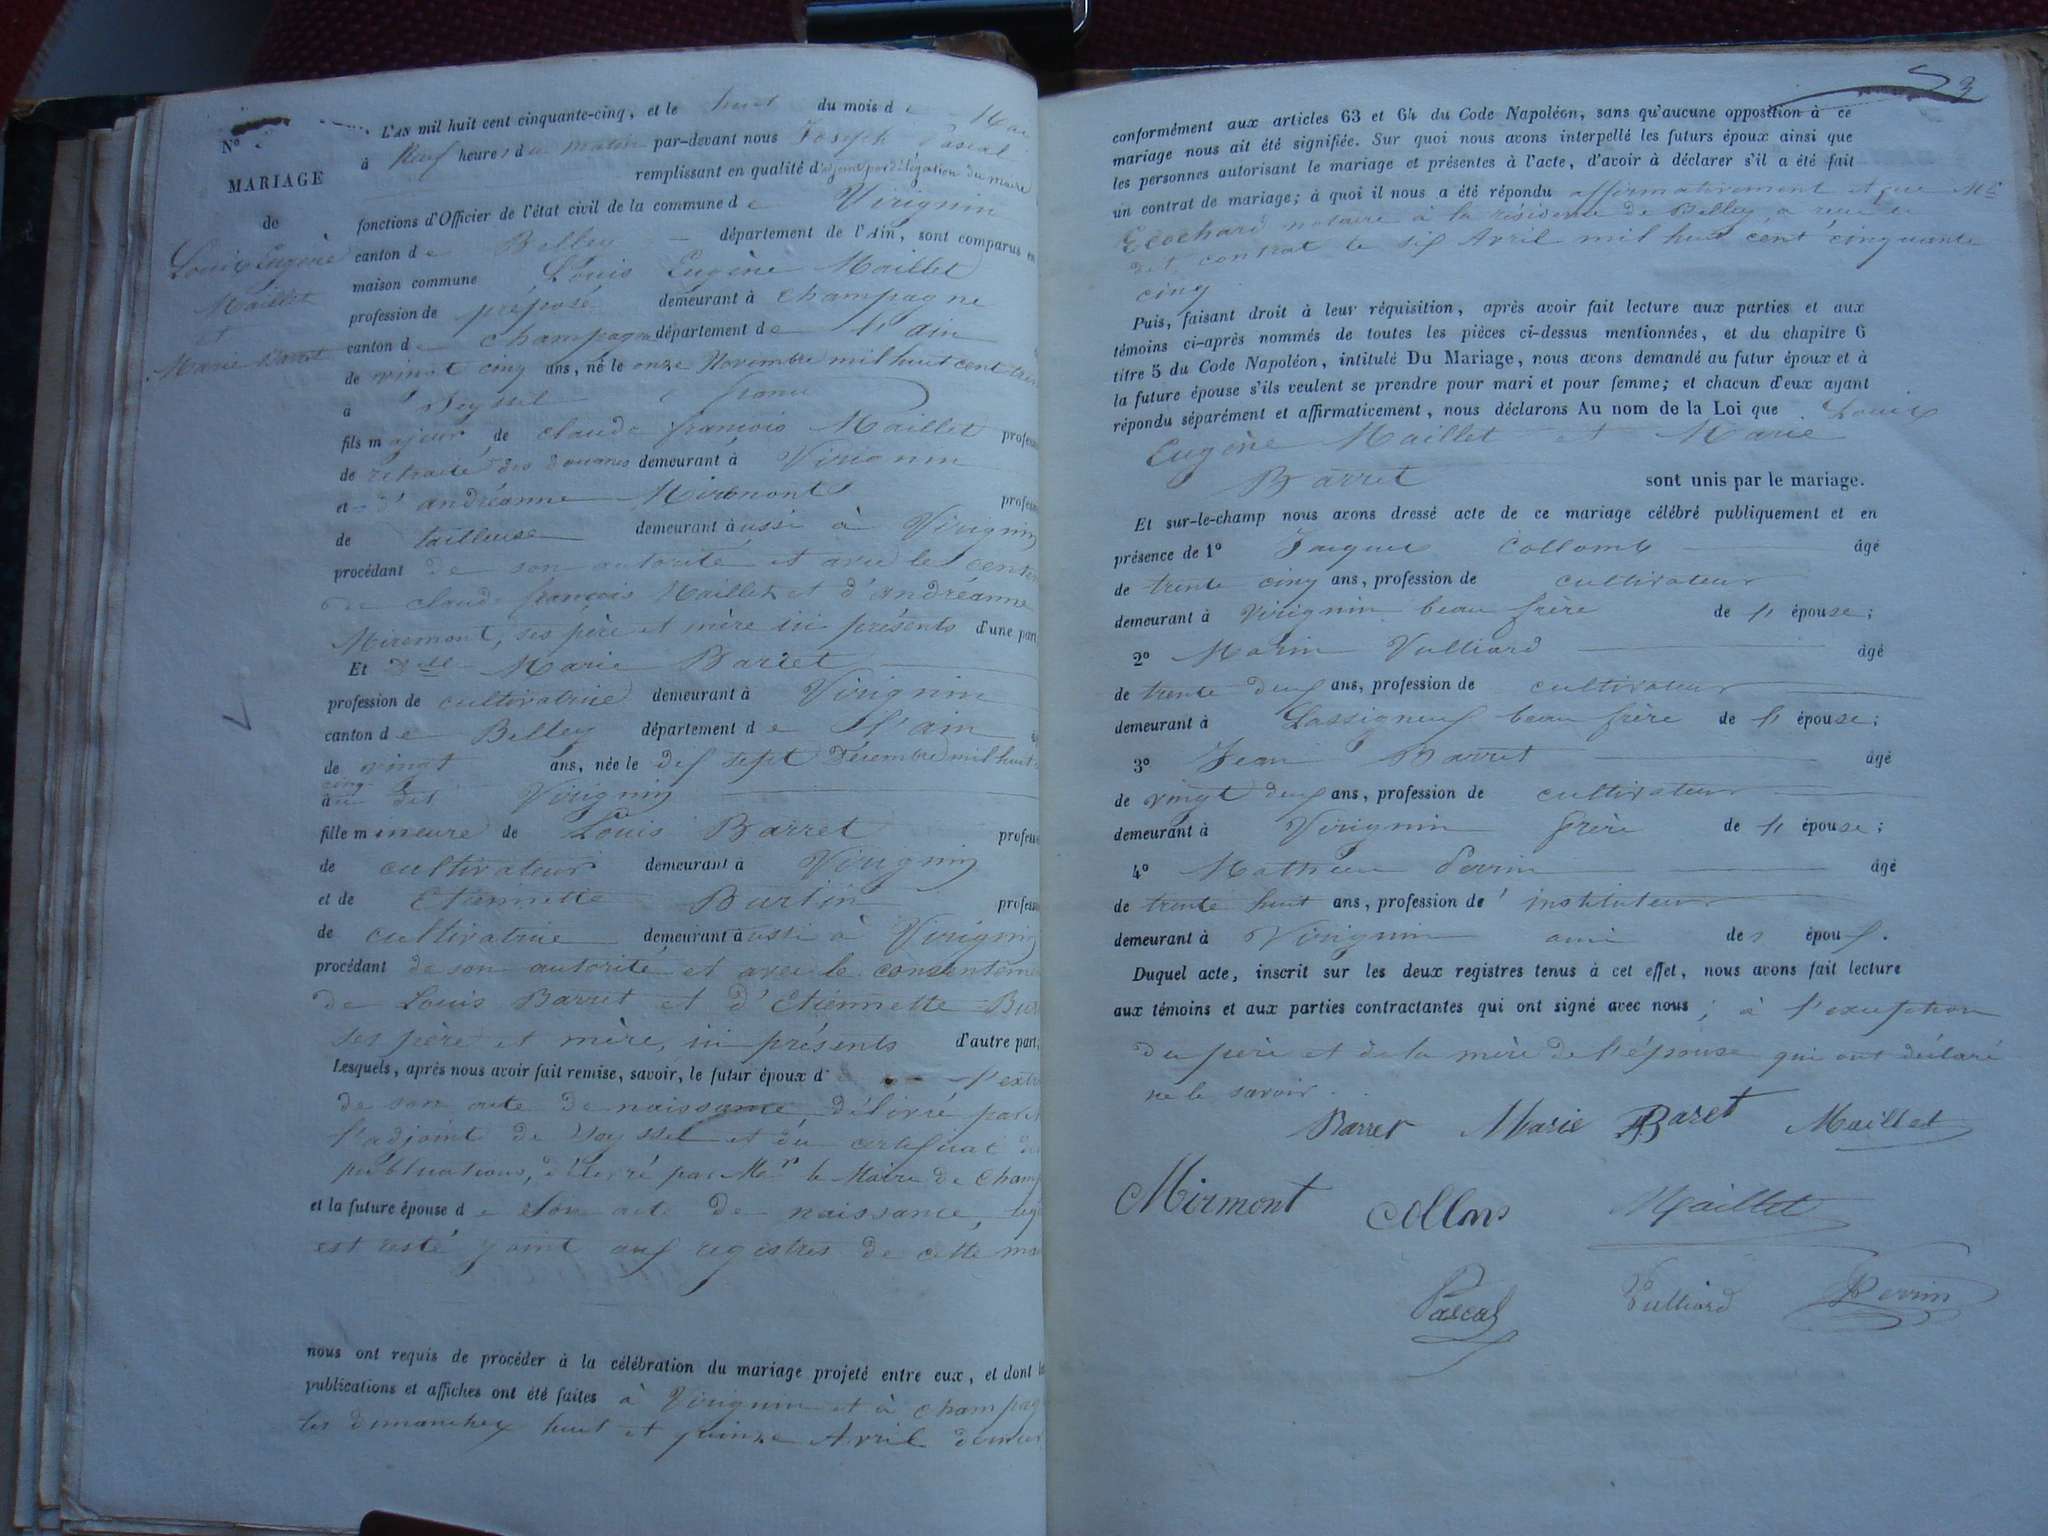 N°
MARIAGE
de
Louis Eugène
Maillet
et
Marie Barret
L'AN mil huit cent cinquante-cinq, et le huit du mois de Mai
à Neuf heures du matin par-devant nous Joseph Pascal
remplissant en qualité d'adjoint par délégation du maire
fonctions d'Officier de l'état civil de la commune de Virignin
canton de Belley département de l'Ain, sont comparus en
maison commune Louis Eugène Maillet
profession de préposé demeurant à Champagne
canton de Champagne département de l'ain
de vingt cinq ans, né le onze Novembre mil huit cent
à Seyssel
fils majeur de Claude françois Maillet profess
de retraité des douanes demeurant à Virignin
et d'andréanne Miremont profess
de tailleuse demeurant aussi à Virignin
procédant de son autorité et avec le
de Claude françois Maillet et d'andréanne
Miremont, ses père et mère ici présents d'une part
Et Dlle Marie Barret
profession de cultivatrice demeurant à Virignin
canton de Belley département de l'ain
de vingt ans, née le dix sept Décembre mil huit
cinq
au dit Virignin
fille mineure de Louis Barret profess
de cultivateur demeurant à Virignin
et de Etiennette Burtin profess
de cultivatrice demeurant aussi à Virignin
procédant de son autorité et avec le consenteme
de Louis Barret et d'Etiennette Bur
ses père et mère, ici présents d'autre part;
Lesquels, après nous avoir fait remise, savoir, le futur époux d l'extr
de son acte de naissance, délivré par
l'adjoint de Seyssel et du certificat de
publications, délivré par Mr le Maire de Cham
et la future épouse de son acte de naissance,
est resté joint aux registres de cette ma
nous ont requis de procéder à la célébration du mariage projeté entre eux, et dont
publications et affiches ont été faites à Virignin et à Champag
les dimanches huit et quinze Avril dernier
53
conformément aux articles 63 et 64 du Code Napoléon, sans qu'aucune opposition à ce
mariage nous ait été signifiée. Sur quoi nous avons interpellé les futurs époux ainsi que
les personnes autorisant le mariage et présentes à l'acte, d'avoir à déclarer s'il a été fait
un contrat de mariage; à quoi il nous a été répondu affirmativement et que Me
Ecochard notaire à la résidence de Belley, a reçu le
dit contrat le six Avril mil huit cent cinquante
cinq
Puis, faisant droit à leur réquisition, après avoir fait lecture aux parties et aux
témoins ci-après nommés de toutes les pièces ci-dessus mentionnées, et du chapitre 6
titre 5 du Code Napoléon, intitulé Du Mariage, nous avons demandé au futur époux et à
la future épouse s'ils veulent se prendre pour mari et pour femme; et chacun d'eux ayant
répondu séparément et affirmativement, nous déclarons Au nom de la Loi que Louis
Eugène Maillet et Marie
Barret sont unis par le mariage.
Et sur-le-champ nous avons dressé acte de ce mariage célébré publiquement et en
présence de 1° Jacques Collomb âgé
de trente cinq ans, profession de cultivateur
demeurant à Virignin beau frère de l'épouse;
2° Marin Vulliard âgé
de trente deux ans, profession de cultivateur
demeurant à Lassigneux beau frère de l'épouse;
3° Jean Barret âgé
de vingt deux ans, profession de cultivateur
demeurant à Virignin frère de l'épouse;
4° Mathieu Perrin âgé
de trente huit ans, profession d'instituteur
demeurant à Virignin ami des époux.
Duquel acte, inscrit sur les deux registres tenus à cet effet, nous avons fait lecture
aux témoins et aux parties contractantes qui ont signé avec nous; à l'exception
du père et de la mère de l'épouse qui ont déclaré
ne le savoir.
Barret Marie Baret Maillet
Mirmont Maillet
Pascal Vulliard Perrin